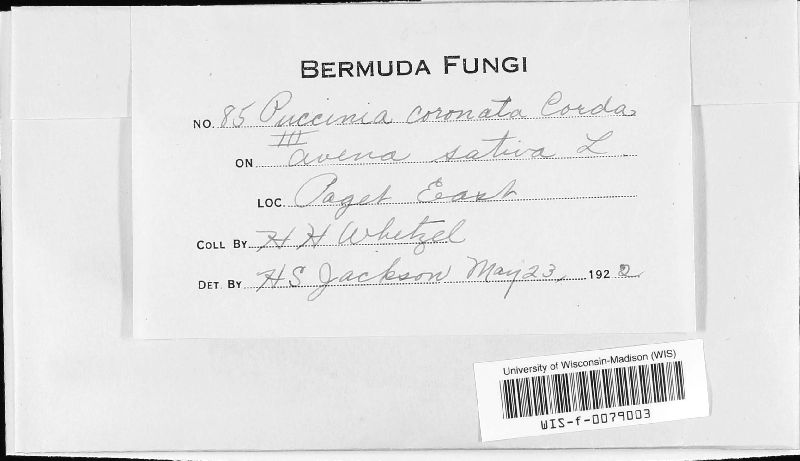 BERMUDA FUNGI
NO. 85 Puccinia coronata Corda
III
ON Avena sativa L.
LOC. Paget East
COLL BY H H Whetzel
DET. BY HS Jackson May 23, 1922
University of Wisconsin-Madison (WIS)
WIS-f-0079003